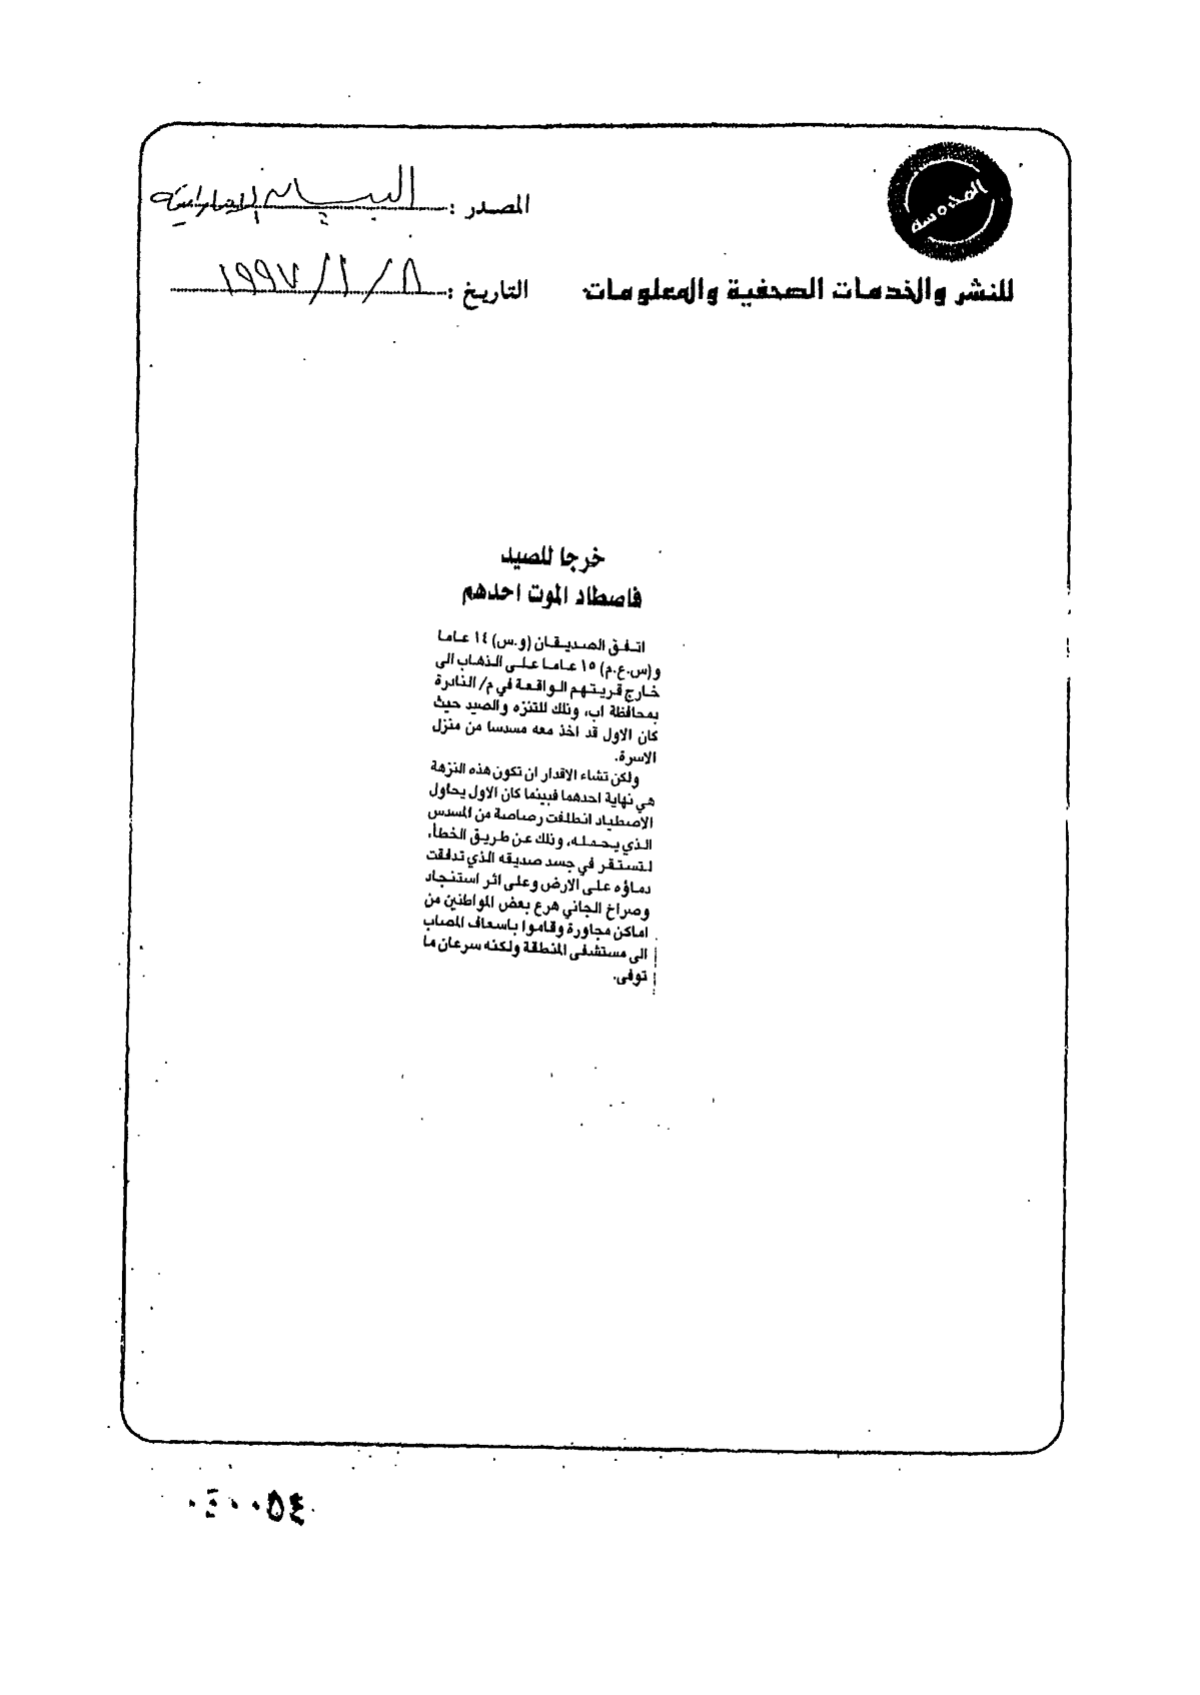 المحروسة
المصدر : البيان الإماراتية
للنشر والخدمات الصحفية والمعلومات
التاريخ : ٨ / ١ / ١٩٩٧
خرجا للصيد
فاصطاد الموت احدهم
اتفق الصديقان (و.س) ١٤ عاما
و(س.ع.م) ١٥ عاما على الذهاب الى
خارج قريتهم الواقعة في م/ النادرة
بمحافظة اب، وذلك للتنزه والصيد حيث
كان الاول قد اخذ معه مسدسا من منزل
الاسرة.
ولكن تشاء الاقدار ان تكون هذه النزهة
هي نهاية احدهما فبينما كان الاول يحاول
الاصطياد انطلقت رصاصة من المسدس
الذي يحمله، وذلك عن طريق الخطأ،
لتستقر في جسد صديقه الذي تدفقت
دماؤه على الارض وعلى اثر استنجاد
وصراخ الجاني هرع بعض المواطنين من
اماكن مجاورة وقاموا باسعاف المصاب
الى مستشفى المنطقة ولكنه سرعان ما
توفى.